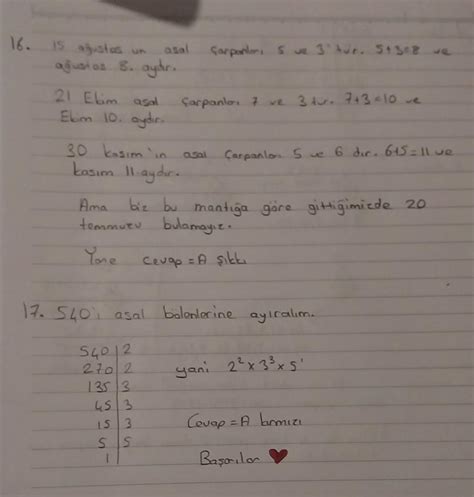 16. 15 ağustos un asal çarpanları 5 ve 3'tür. 5+3=8 ve
ağustos 8. aydır.
21 Ekim asal çarpanları 7 ve 3 tür. 7+3=10 ve
Ekim 10. aydır.
30 kasım'ın asal çarpanları 5 ve 6 dır. 6+5=11 ve
kasım 11 aydır.
Ama biz bu mantığa göre gittiğimizde 20
temmuzu bulamayız.
Yane cevap = A şıkkı
17. 540'ı asal bölenlerine ayıralım.
540 | 2
270 | 2 yani 2² x 3³ x 5¹
135 | 3
45 | 3
15 | 3 Cevap = A kırmızı
5 | 5
1 | Başarılar ❤